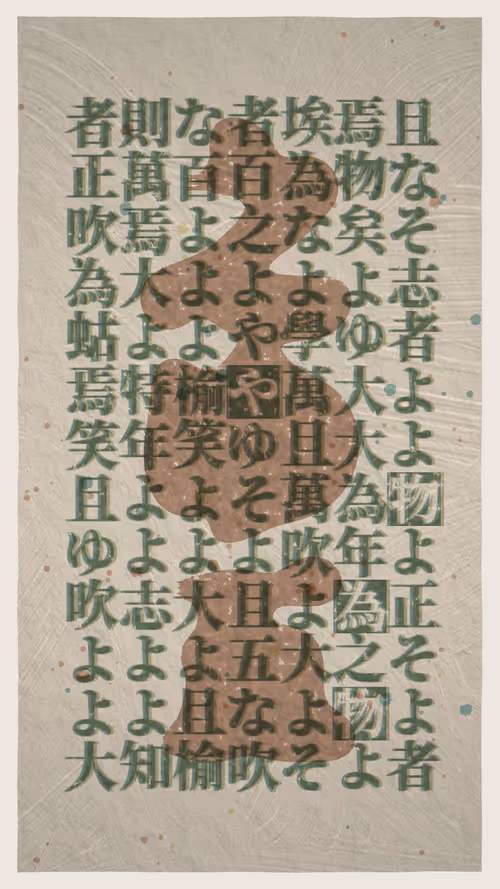 且なそ志者よよ物よ正そよ者
焉物矣よゆ大大為年為之物よ
埃為なよ學萬且萬吹よ大よそ
者百之よややゆそよ且五な吹
な百よよよ楡笑よよ大よ且楡
則萬焉大よ特年よよ志よよ知
者正吹為蛄焉笑且ゆ吹よよ大